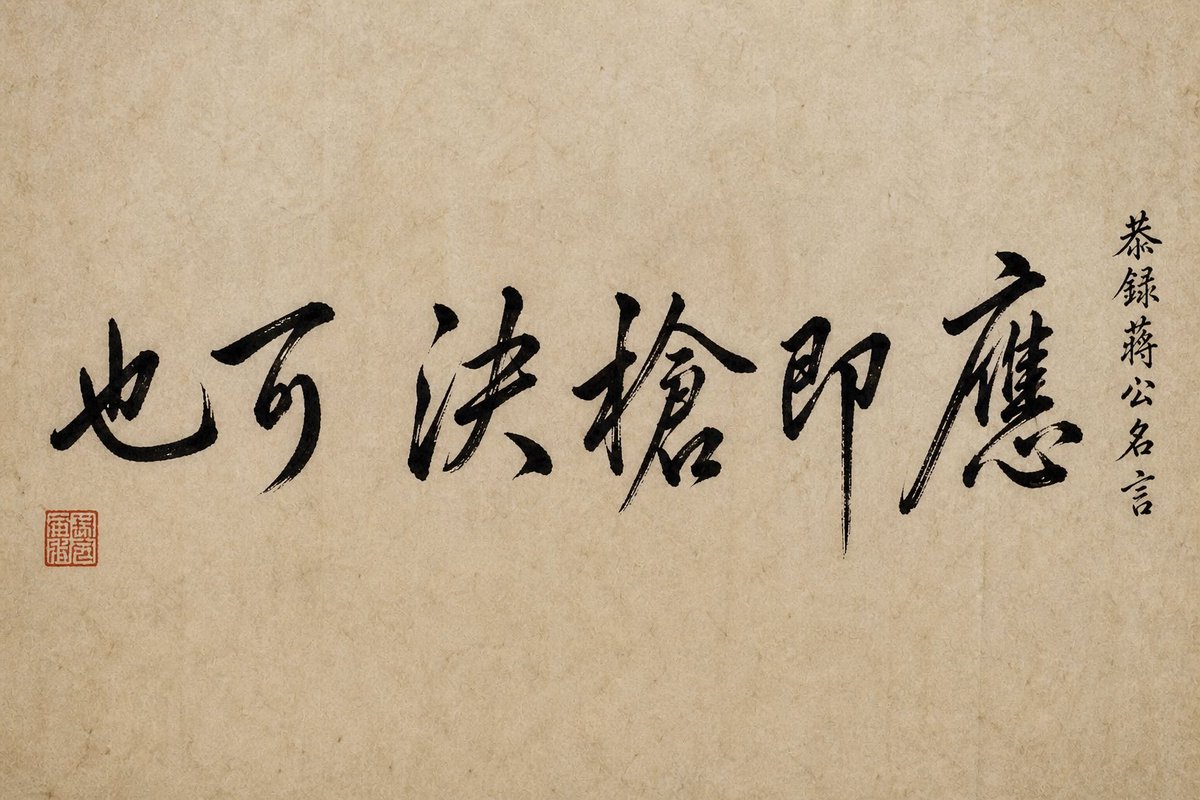 恭録蔣公名言
應即槍決可也